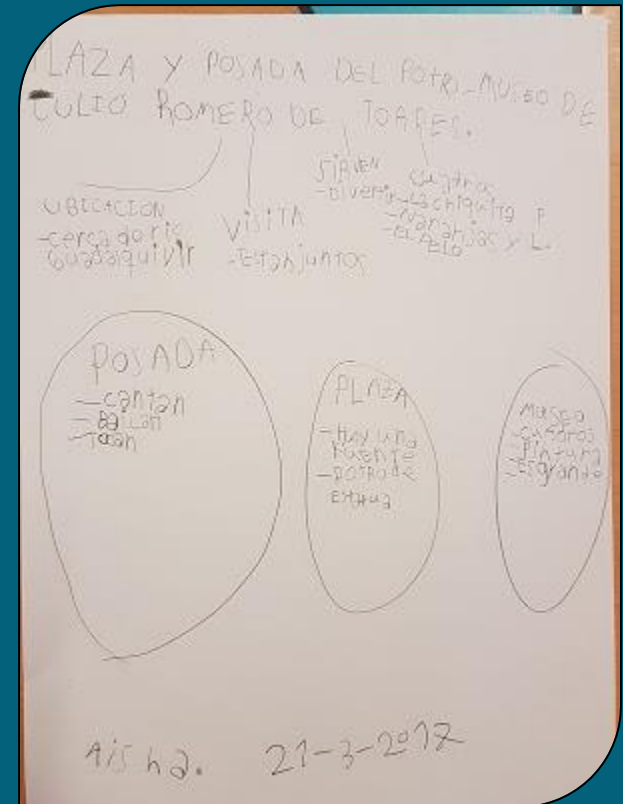 PLAZA Y POSADA DEL POTRO-MUSEO DE
JULIO ROMERO DE TORRES.
UBICACION
-cerca do rio
Guadalquivir
VISITA
-Estan juntos
SIRVEN
-Divertir
cuadros
-La chiquita P
-Naranjas y L.
-EL PELO
POSADA
-cantan
-Bailan
-Tocan
PLAZA
-Hay una
Fuente
-POTRO de
EStatua
Museo
-cuadros
-Pintura
-ES grande
Aisha. 21-3-2017